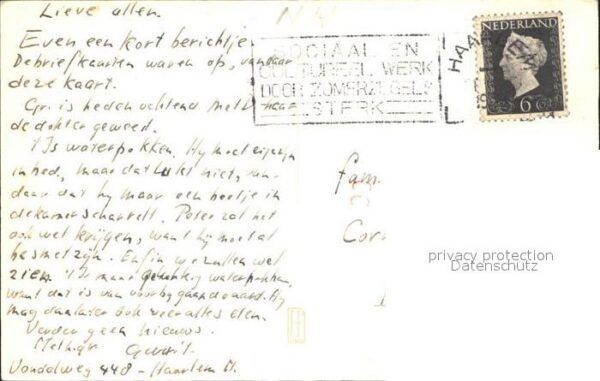 Lieve allen.
Even een kort berichtje
De briefkaarten waren op, vandaar
deze kaart.
Gr. is heden ochtend met naar
de dokter geweest.
't Is waterpokken. Hij moet eigenlijk
in bed, maar dat lukt niet, van-
daar dat hij maar een beetje in
de kamer scharrelt. Peter zal het
ook wel krijgen, want hij moet al
besmet zijn. Enfin we zullen wel
zien. 't Is maar gelukkig waterpokken,
want dat is van voorbijgaande aard. Hij
mag daarater ook weer alles eten.
Verder geen nieuws.
Met h. gr. Gerrit.
Vondelweg 448 - Haarlem N.
N H
SOCIAAL EN
CULTUREEL WERK
DOOR ZOMERZEGELS
STERK
HAA
NEDERLAND
6
fam.
Cor
privacy protection
Datenschutz